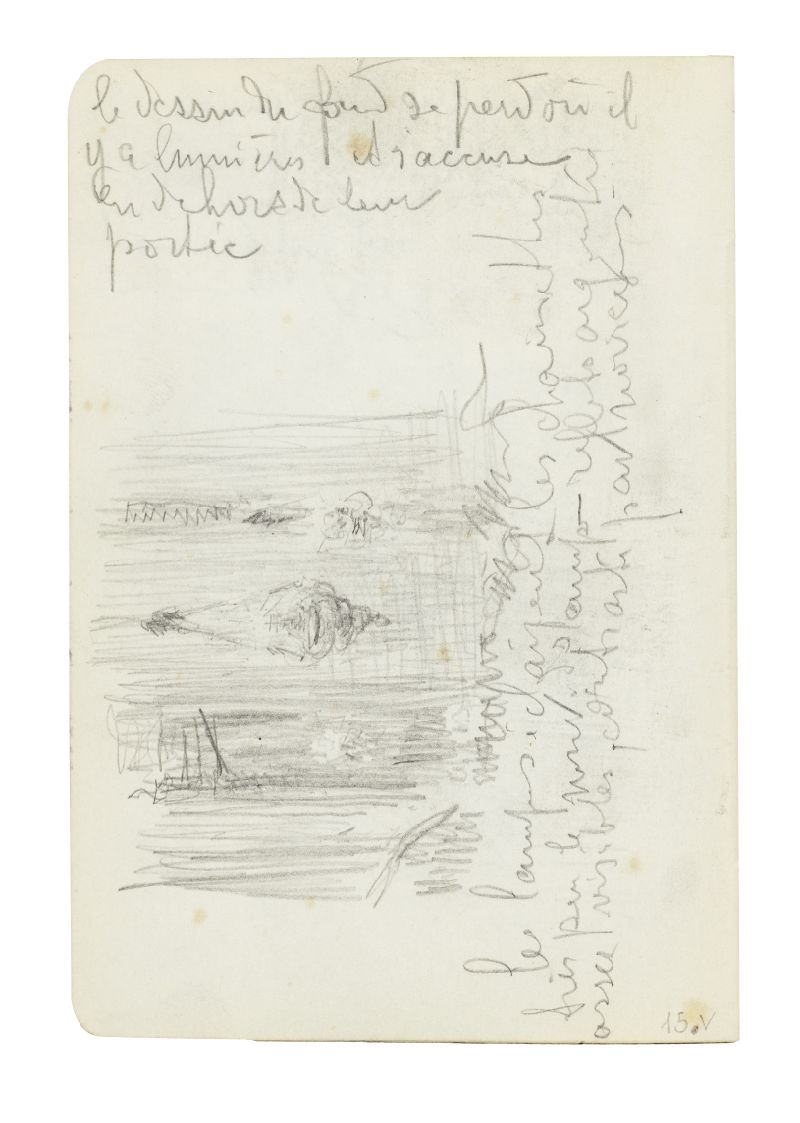 le dessin du fond se perd où il
y a lumières et s'accuse
en dehors de leur
portée
les lampes éclairent les chaînettes
très peu le mur
assez visibles contraste par
15.v